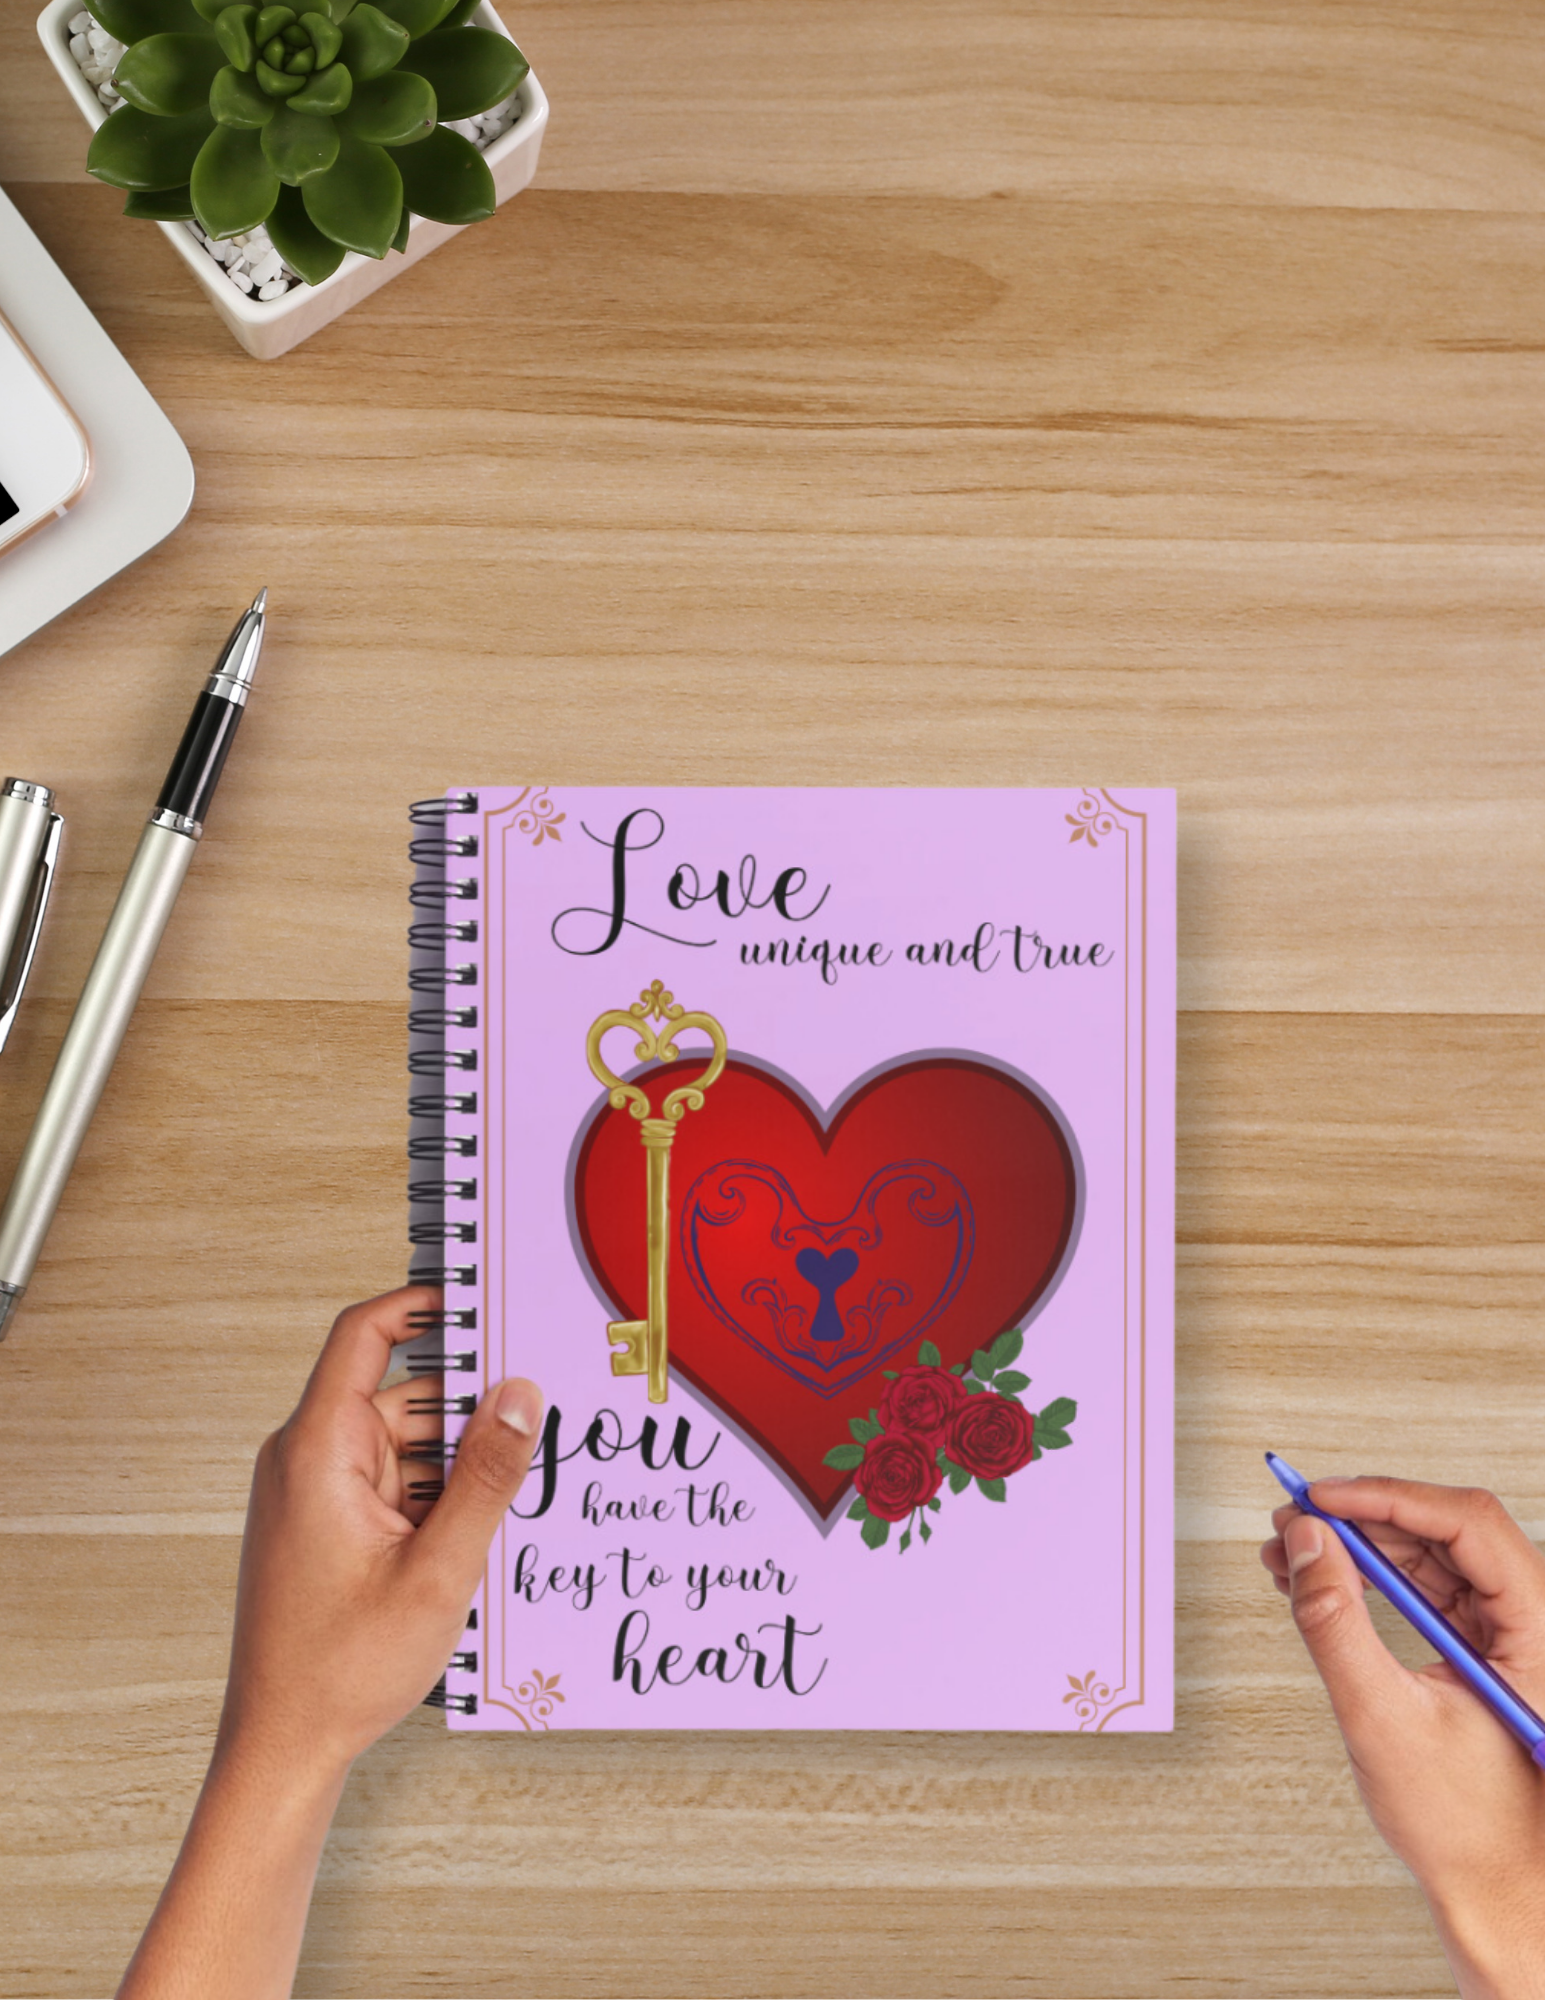 Love
unique and true
you
have the
key to your
heart